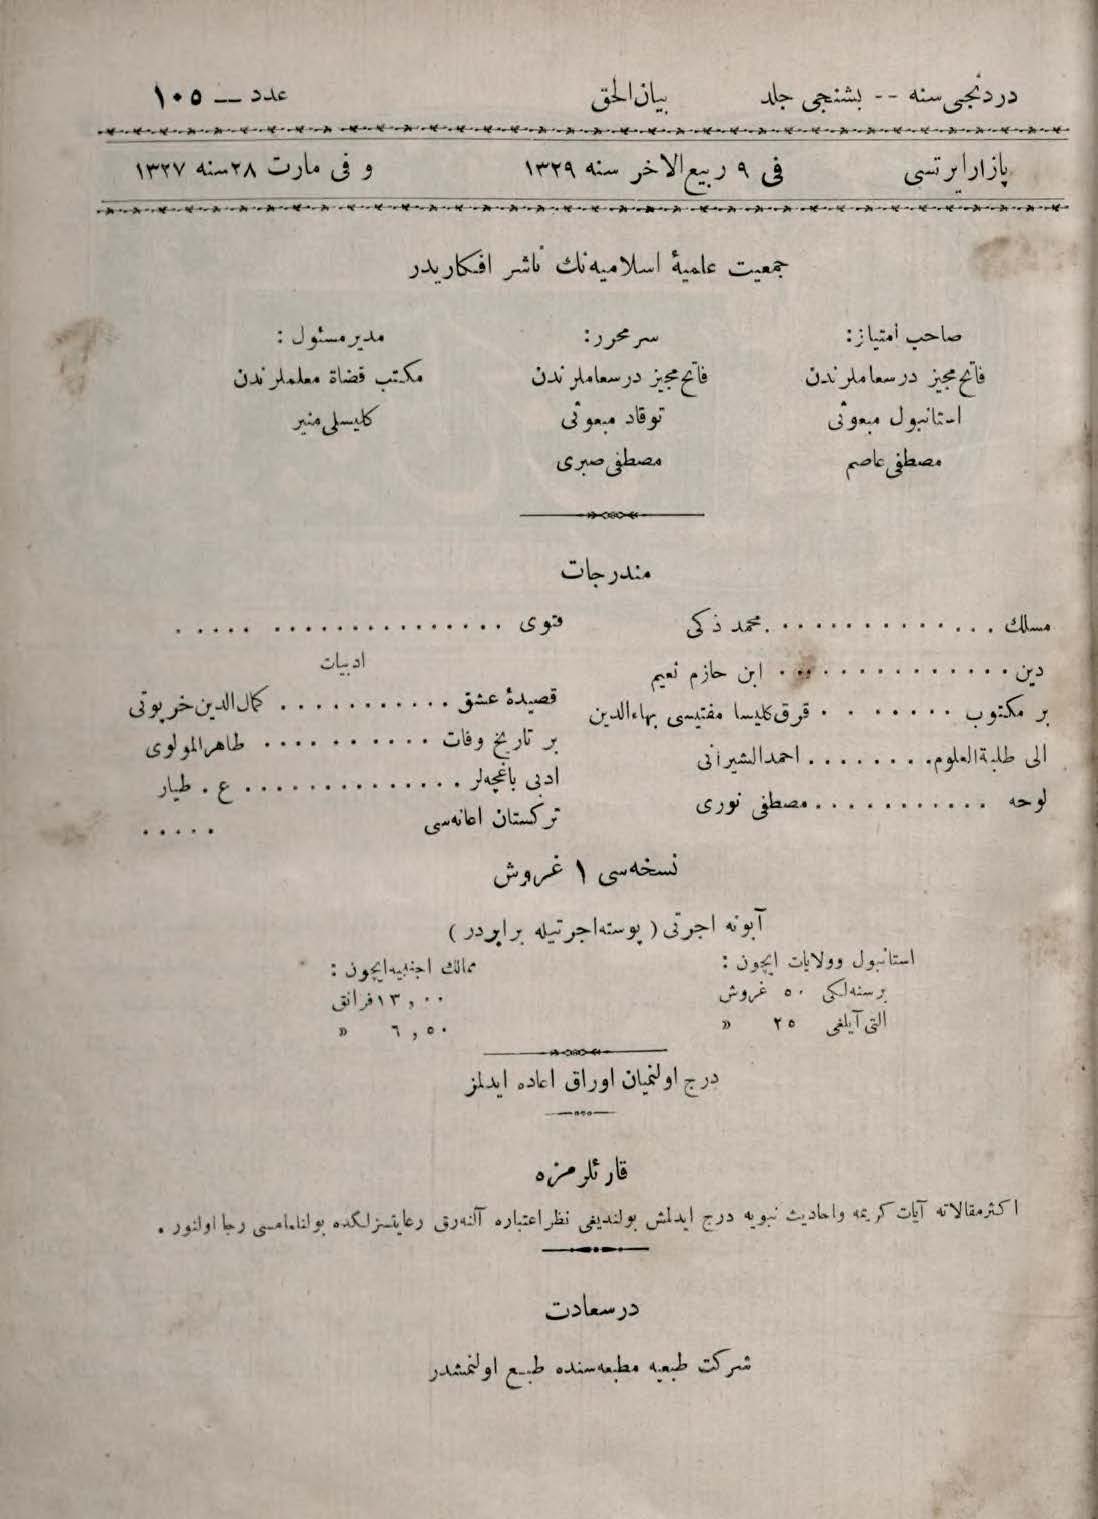 دردنجی سنه -- بشنجی جلد بیان الحق عدد — ۱۰۵
پازار ایرتسی فی ۹ ربیع الاخر سنه ۱۳۲۹ و فی مارت ۲۸ سنه ۱۳۲۷
جمعیت علمیهٔ اسلامیه نك ناشر افکاریدر
صاحب امتیاز:
فاتح مجیز درسعاملرندن
استانبول مبعوثی
مصطفی عاصم
سر محرر:
فاتح مجیز درسعاملرندن
توقاد مبعوثی
مصطفی صبری
مدیر مسئول :
مکتب قضاة معلملرندن
کلیسلی منیر
مندرجات
مسلك . . . . . . . . . . . . . . محمد ذکی
دین . . . . . . . . . . . . . . ابن حازم نعیم
بر مکتوب . . . . . . . . قرق کلیسا مفتیسی بهاءالدین
الی طلبة العلوم . . . . . . . . احمد الشیرانی
لوحه . . . . . . . . . . . . مصطفی نوری
فتوی . . . . . . . . . . . . . . . . . . . .
ادبیات
قصیدهٔ عشق . . . . . . . . . . . کمال الدین خرپوتی
بر تاریخ وفات . . . . . . . . . . طاهر المولوی
ادبی باغچه لر . . . . . . . . . . . . . . ع . طیار
ترکستان اعانه سی . . . . .
نسخه سی ۱ غروش
آبونه اجرتی ( پوسته اجرتیله برابردر )
استانبول وولایات ایچون :
برسنه لکی ۵۰ غروش
التی آیلغی ۲۵ «
ممالك اجنبیه ایچون :
۱۳,۰۰ فرانق
۶,۵۰ «
درج اولنمیان اوراق اعاده ایدلمز
قارئلرمزه
اکثر مقالاته آیات کریمه واحادیث نبویه درج ایدلمش بولندیغی نظر اعتباره آلنه رق رعایتسزلکده بولنلمامسی رجا اولنور .
درسعادت
شرکت طبعیه مطبعه سنده طبع اولنمشدر